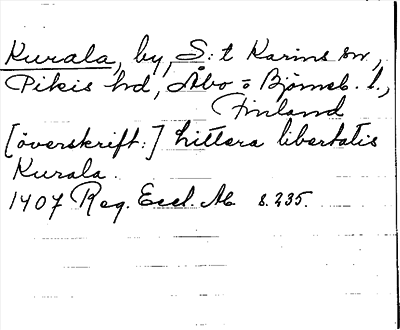 Kurala, by, S:t Karins sn,
Pikis hd, Åbo = Björneb. l.,
Finland
[överskrift:] Littera libertatis
Kurala.
1407 Reg. Eccl. Ab. s. 235.